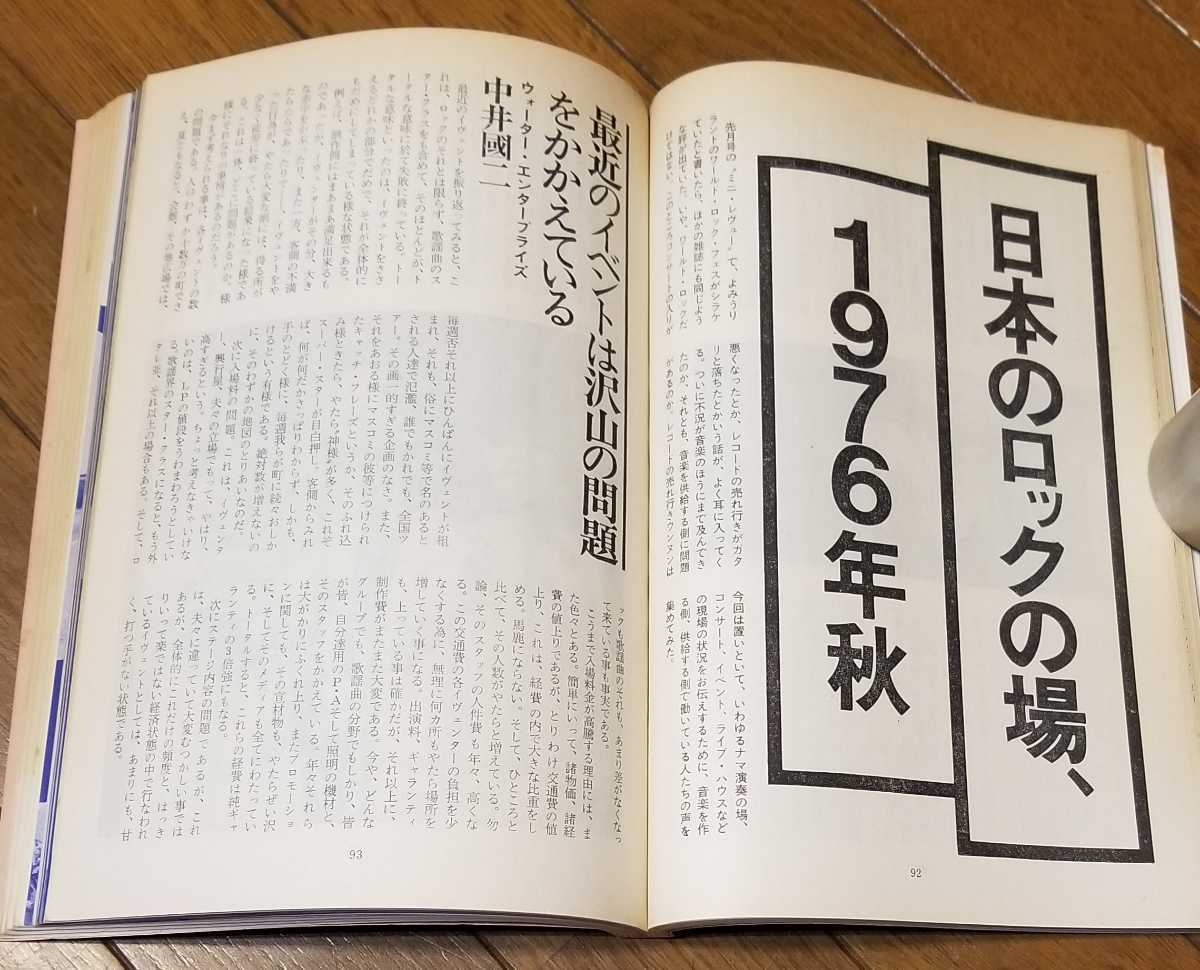 日本のロックの場、
1976年秋
先月号の“ミニ・レヴュー”で、よみうり
ランドのワールド・ロック・フェスがシラケ
ていたと書いたら、ほかの雑誌にも同じよう
な評が出ていた。いや、ワールド・ロックだ
けではない、このところコンサートの入りが
悪くなったとか、レコードの売れ行きがガタ
リと落ちたとかいう話が、よく耳に入ってく
る。ついに不況が音楽のほうにまで及んでき
たのか、それとも、音楽を供給する側に問題
があるのか、レコードの売れ行きウンヌンは
今回は置いといて、いわゆるナマ演奏の場、
コンサート、イベント、ライブ・ハウスなど
の現場の状況をお伝えするために、音楽を作
る側、供給する側で働いている人たちの声を
集めてみた。
92
最近のイベントは沢山の問題
をかかえている
ウォーター・エンタープライズ
中井國二
最近のイヴェントを振り返ってみると、こ
れは、ロックのそれとは限らず、歌謡曲のス
ター・クラスをも含めて、そのほとんどが、ト
ータルな意味に於て失敗に終っている。トー
タルな意味といったのは、イヴェントをささ
えるどれかの部分でだめで、それが全体的に
もだめにしてしまっている様な状態である。
例えば、制作側にはまあまあ満足出来るも
のであったが、イヴェンターがその分、大き
な赤字をかぶったり、また一方、客側の不満
たらたらであったりで⋯⋯、イヴェントをや
った行為が、やたら大変な割には、得る所が
少なく徒労に終っている結果になった様であ
る。これは一体、どこに問題があるのか。様
様にそれなりの事情があるのだろう。
今まず考えられる事は、各イヴェントの数
の問題である。人のわずか十数万の町でさ
え、夏ともなると、会館、その他の会場では、
毎週否それ以上にひんぱんにイヴェントが組
まれ、それも、俗にマスコミ等で名のあると
される人達で氾濫、誰でもかれでも、全国ツ
アー。その画一的すぎる企画のなさ。また、
それをあおる様にマスコミの彼等につけられ
たキャッチ・フレーズというか、そのふれ込
み様ときたら、やたら“神様”が多く、これぞ
スーパー・スターが目白押し。客側からみれ
ば、何が何だかさっぱりわからず、しかも、
手のとどく様に、毎週我らが町に続々おしか
けるという有様である。絶対数が増えないの
に、そのわずかの地図のとりあいなのだ。
次に入場料の問題。これは、イヴェンタ
ー、興行屋、夫々の立場でもって、やはり、
高すぎるという。ちょっと考えなきゃいけな
いのは、LPの値段をうわまわろうとしてい
る。歌謡界のスター・クラスになると、もう外
タレ並、それ以上の場合もある。そして、ロ
ックも歌謡曲のそれも、あまり差がなくなっ
て来ている事も事実である。
こうまで入場料金が高騰する理由には、ま
た色々とある。簡単にいって、諸物価、諸経
費の値上りであるが、とりわけ交通費の値
上り、これは、経費の内で大きな比重をし
める。馬鹿にならない。そして、ひところと
比べて、その人数がやたらと増えている。勿
論、そのスタッフの人件費も年々、高くな
る。この交通費の各イヴェンターの負担を少
なくする為に、無理に何カ所もやたら場所を
増していく事になる。出演料、ギャランティ
も、上っている事は確かだが、それ以上に、
制作費がまたまた大変である。今や、どんな
グループでも、歌謡曲の分野でもしかり、皆
が皆、自分達用のP・Aそして照明の機材と、
そのスタッフをかかえている。年々それら
は大がかりにふくれ上り、またプロモーショ
ンに関しても、その宣材物も、やたらぜい沢
に、そしてそのメディアも全てにわたってい
る。トータルすると、これらの経費は純ギャ
ランティの3倍強にもなる。
次にステージ内容の問題であるが、これ
は、夫々に違っていて大変むつかしい事では
あるが、全体的にこれだけの頻度と、はっき
りいって楽ではない経済状態の中で行なわれ
ているイヴェントとしては、あまりにも、甘
く、打つ手がない状態である。
93